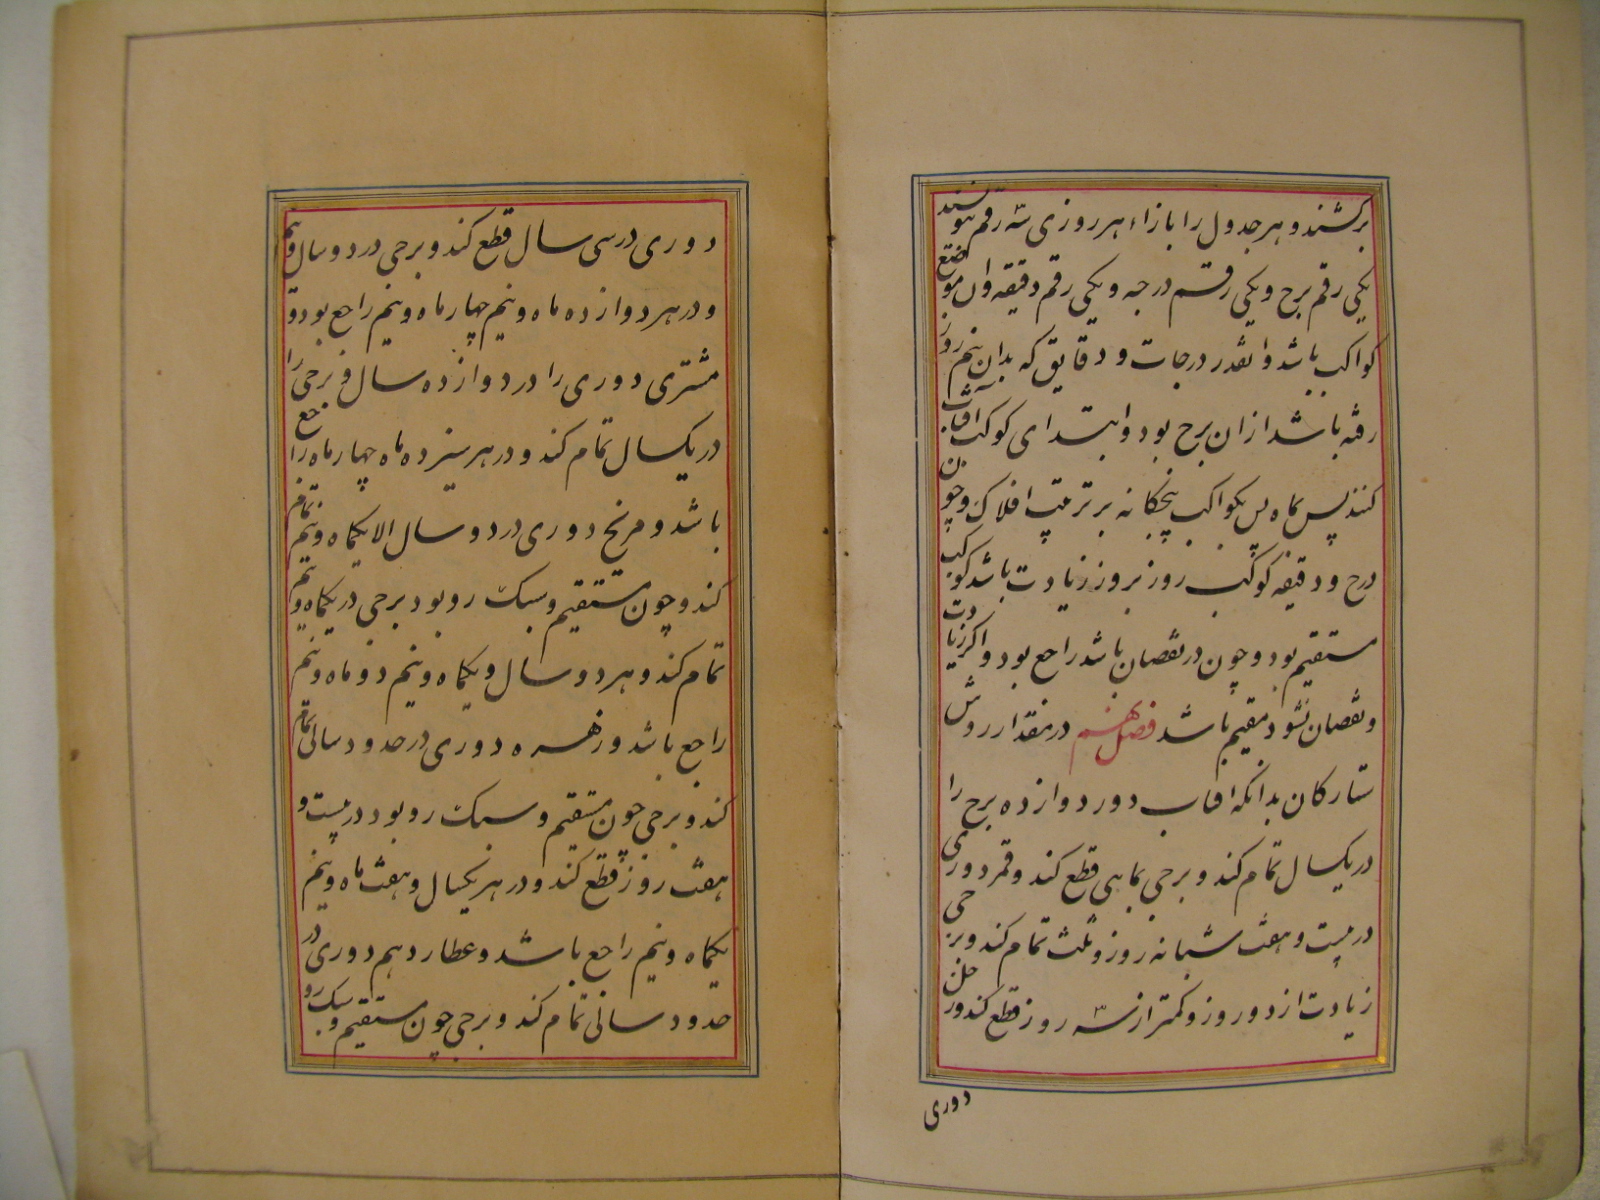 برکشند و هر جدول را بازاء هر روزی سه رقم نویسند
یکی رقم برج و یکی رقم درجه و یکی رقم دقیقه وان موضع
کواکب باشد وانقدر درجات و دقایق که بدان نیم روز
رفته باشد ازان برج بود وابتدای کوکب افتاب
کنند پس بماه پس بکواکب پنجکانه بر ترتیب افلاک و چون
درج و دقیقه کوکب روز بروز زیادت باشد کوکب
مستقیم بود و چون در نقصان باشد راجع بود و اکر زیادت
و نقصان نشود مقیم باشد فصل نهم در مقدار روش
ستارکان بدانکه افتاب دور دوازده برج را
در یکسال تمام کند و برجی بماهی قطع کند و قمر دوری
در بیست و هفت شبانه روز و ثلث تمام کند و برجی
زیادت از دو روز و کمتر از سه روز قطع کند و زحل
دوری
دوری در سی سال قطع کند و برجی در دو سال و نیم
و در هر دوازده ماه و نیم چهار ماه و نیم راجع بود و
مشتری دوری را در دوازده سال و برجی را
در یکسال تمام کند و در هر سیزده ماه چهار ماه راجع
باشد و مریخ دوری در دو سال الا یکماه و نیم تمام
کند و چون مستقیم و سبک رو بود برجی در یکماه و نیم
تمام کند و هر دو سال و یکماه و نیم دو ماه و نیم
راجع باشد و زهره دوری در حدود سالی تمام
کند و برجی چون مستقیم و سبک رو بود در بیست و
هفت روز قطع کند و در هر یکسال و هفت ماه و نیم
یکماه و نیم راجع باشد و عطارد هم دوری در
حدود سالی تمام کند و برجی چون مستقیم و سبک رو